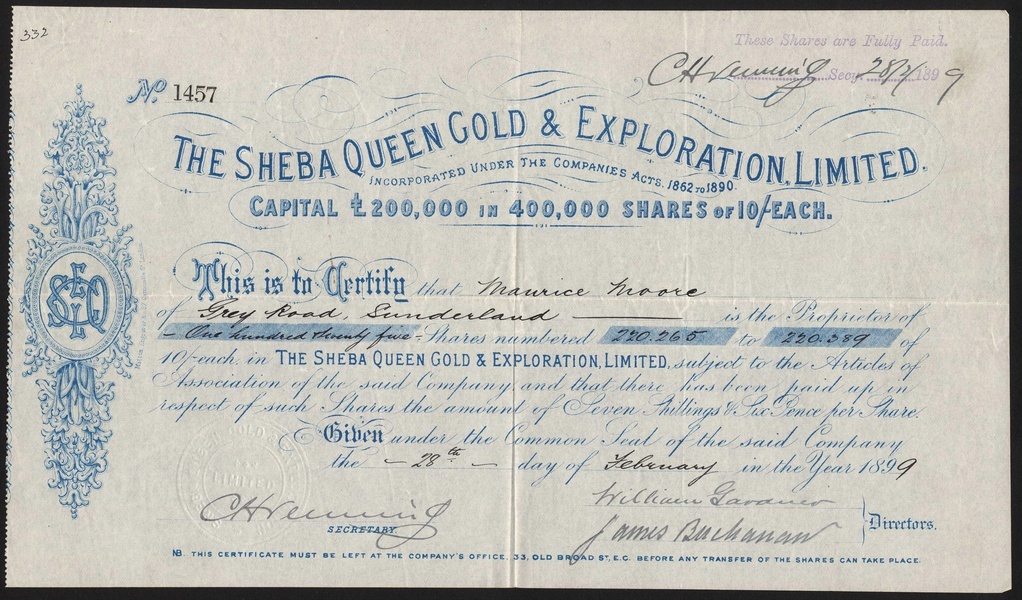 332
These Shares are Fully Paid.
Secy. 28/2/1899
No. 1457
THE SHEBA QUEEN GOLD & EXPLORATION, LIMITED.
INCORPORATED UNDER THE COMPANIES ACTS, 1862 TO 1890.
CAPITAL £200,000 IN 400,000 SHARES OF 10/- EACH.
This is to Certify that Maurice Moore
of Grey Road, Sunderland is the Proprietor of
- One hundred twenty five - Shares numbered 220.265 to 220.389 of
10/- each, in THE SHEBA QUEEN GOLD & EXPLORATION, LIMITED, subject to the Articles of
Association of the said Company and that there has been paid up in
respect of such Shares the amount of Seven Shillings & Six Pence per Share.
Given under the Common Seal of the said Company
the - 28th - day of February in the Year 1899
William Gardner
James Buchanan
Directors.
SECRETARY
LIMITED
NB. THIS CERTIFICATE MUST BE LEFT AT THE COMPANY'S OFFICE, 33, OLD BROAD ST. E.C. BEFORE ANY TRANSFER OF THE SHARES CAN TAKE PLACE.